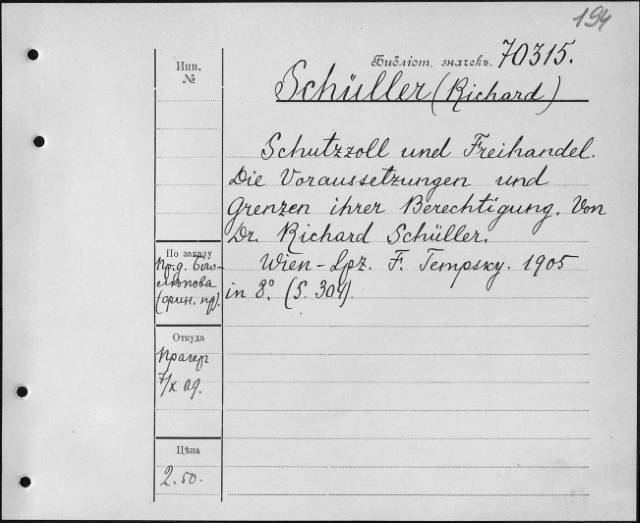 194
Библіот. значекъ. 70315.
Инв.
№
Schüller (Richard)
Schutzzoll und Freihandel.
Die Voraussetzungen und
Grenzen ihrer Berechtigung. Von
Dr. Richard Schüller.
Wien-Lpz. F. Tempsky. 1905
in 8°. (S. 304).
По заказу
пр.д. Бого-
лѣпова
(фин. пр).
Откуда
Прагер
7/X 09.
Цѣна
2.50.